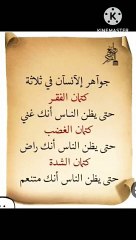 KINEMASTER
جوآهر إلآنسآن في ثلاثة
كتمان الفقر
حتى يظن الناس أنك غني
كتمان الغضب
حتى يظن الناس أنك راض
كتمان الشدة
حتى يظن الناس أنك متنعم